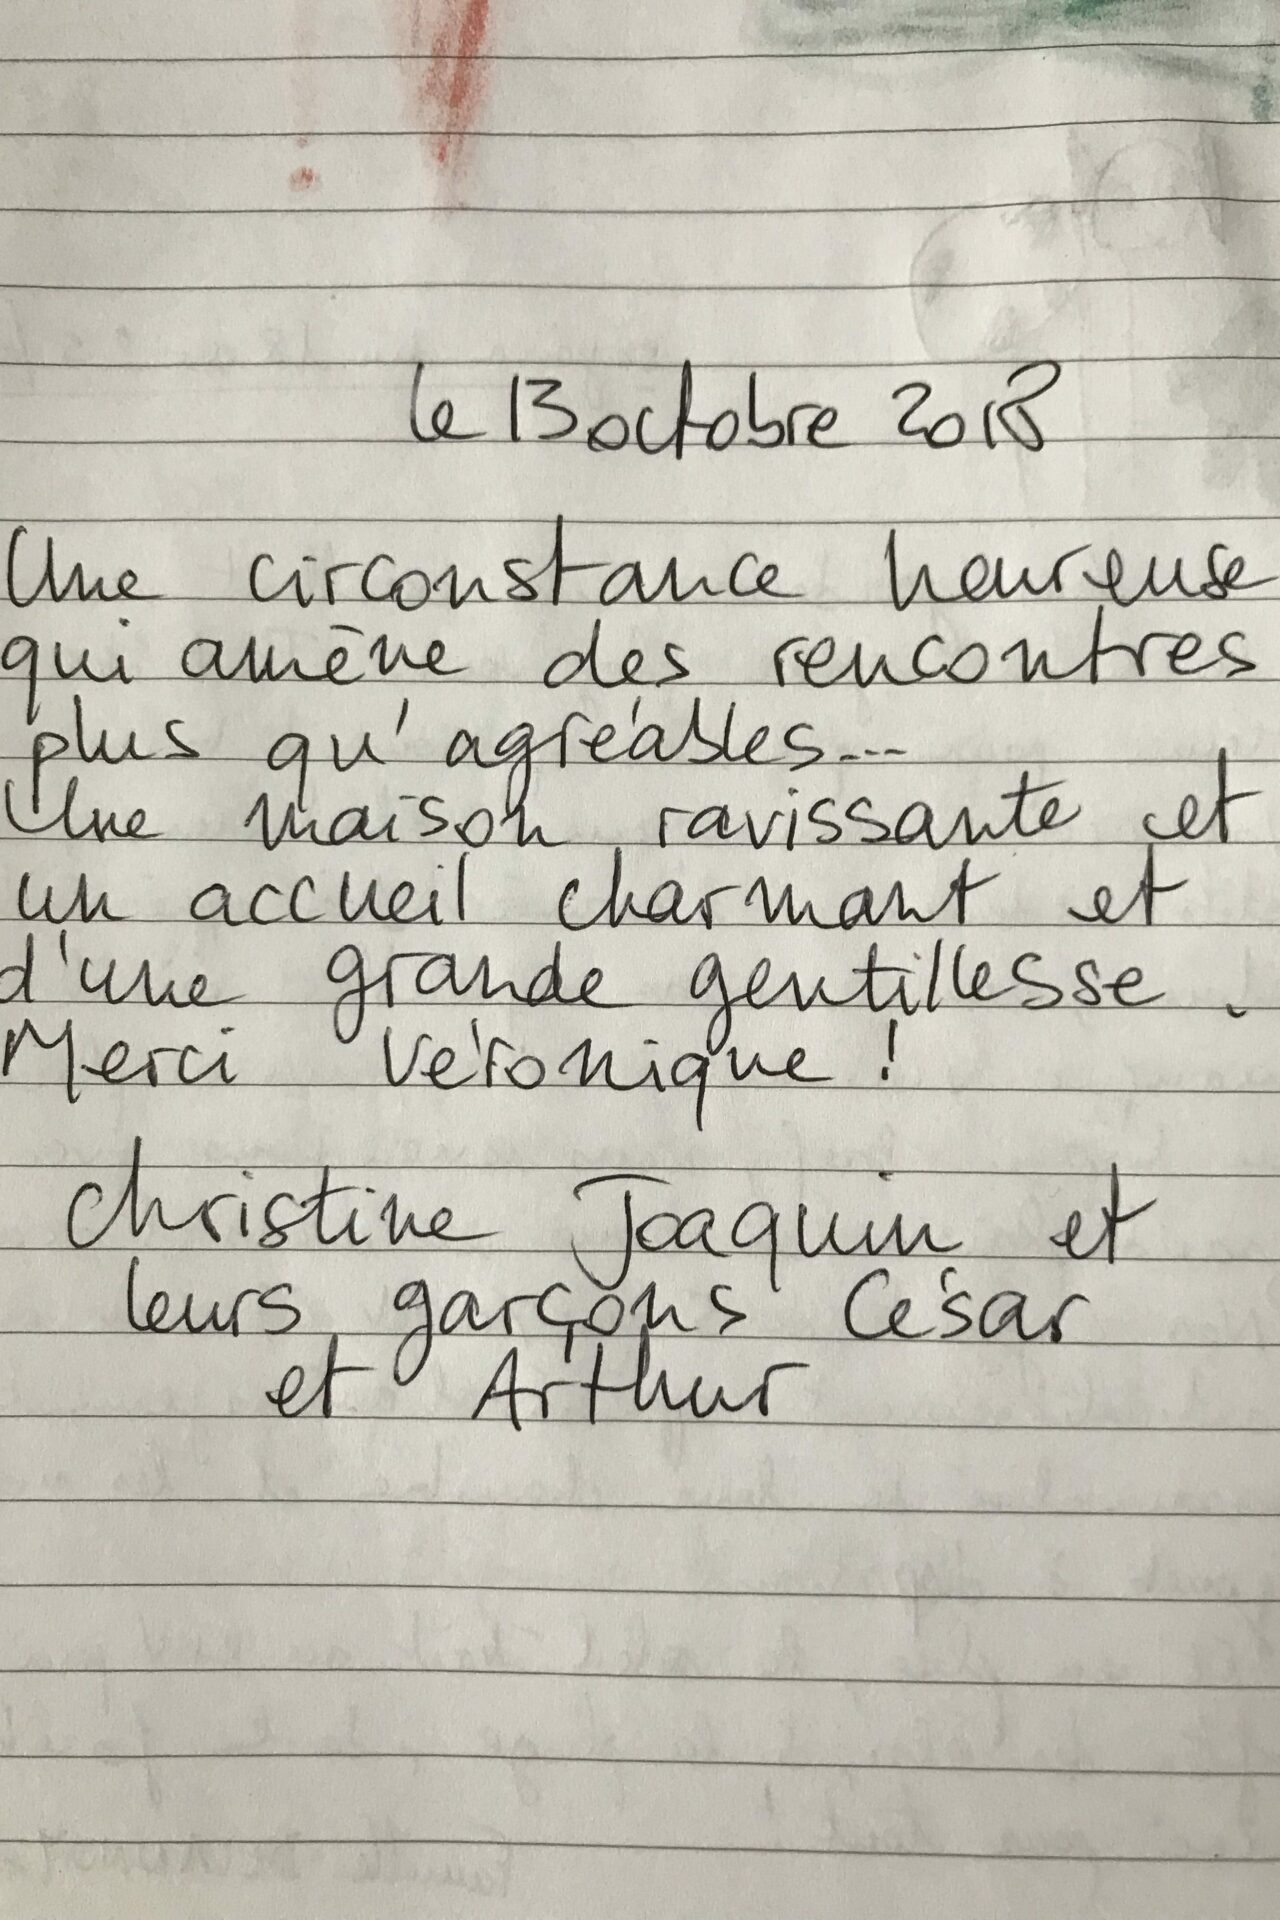 le 13 octobre 2018
Une circonstance heureuse
qui amène des rencontres
plus qu'agréables...
Une maison ravissante et
un accueil charmant et
d'une grande gentillesse.
Merci Véronique !
Christine Joaquin et
leurs garçons César
et Arthur